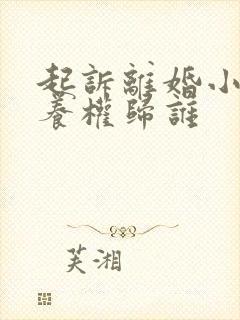 起訴離婚小
養權歸誰
芙湘